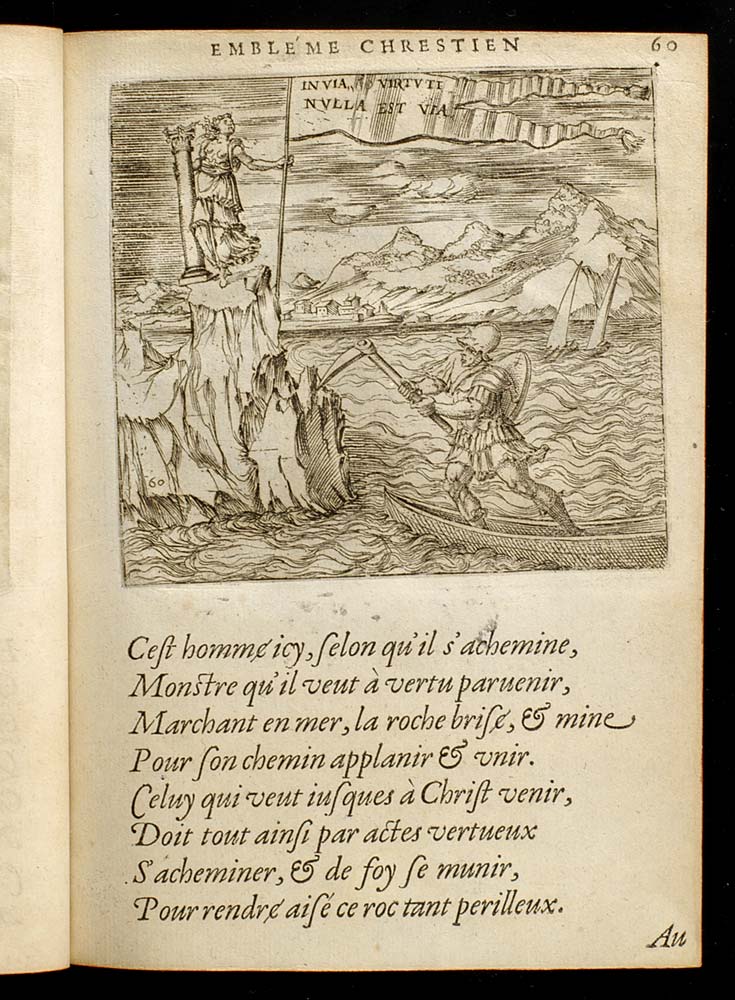 EMBLÉME CHRESTIEN 60
INVIA VIRTVTI
NVLLA EST VIA
60
Ceſt homme̸ icy, ſelon qu'il s'achemine,
Monſtre qu'il veut à vertu paruenir,
Marchant en mer, la roche briſe̸, & mine
Pour ſon chemin applanir & vnir.
Celuy qui veut iuſques à Chriſt venir,
Doit tout ainſi par actes vertueux
S'acheminer, & de foy ſe munir,
Pour rendre̸ aiſé ce roc tant perilleux.
Au